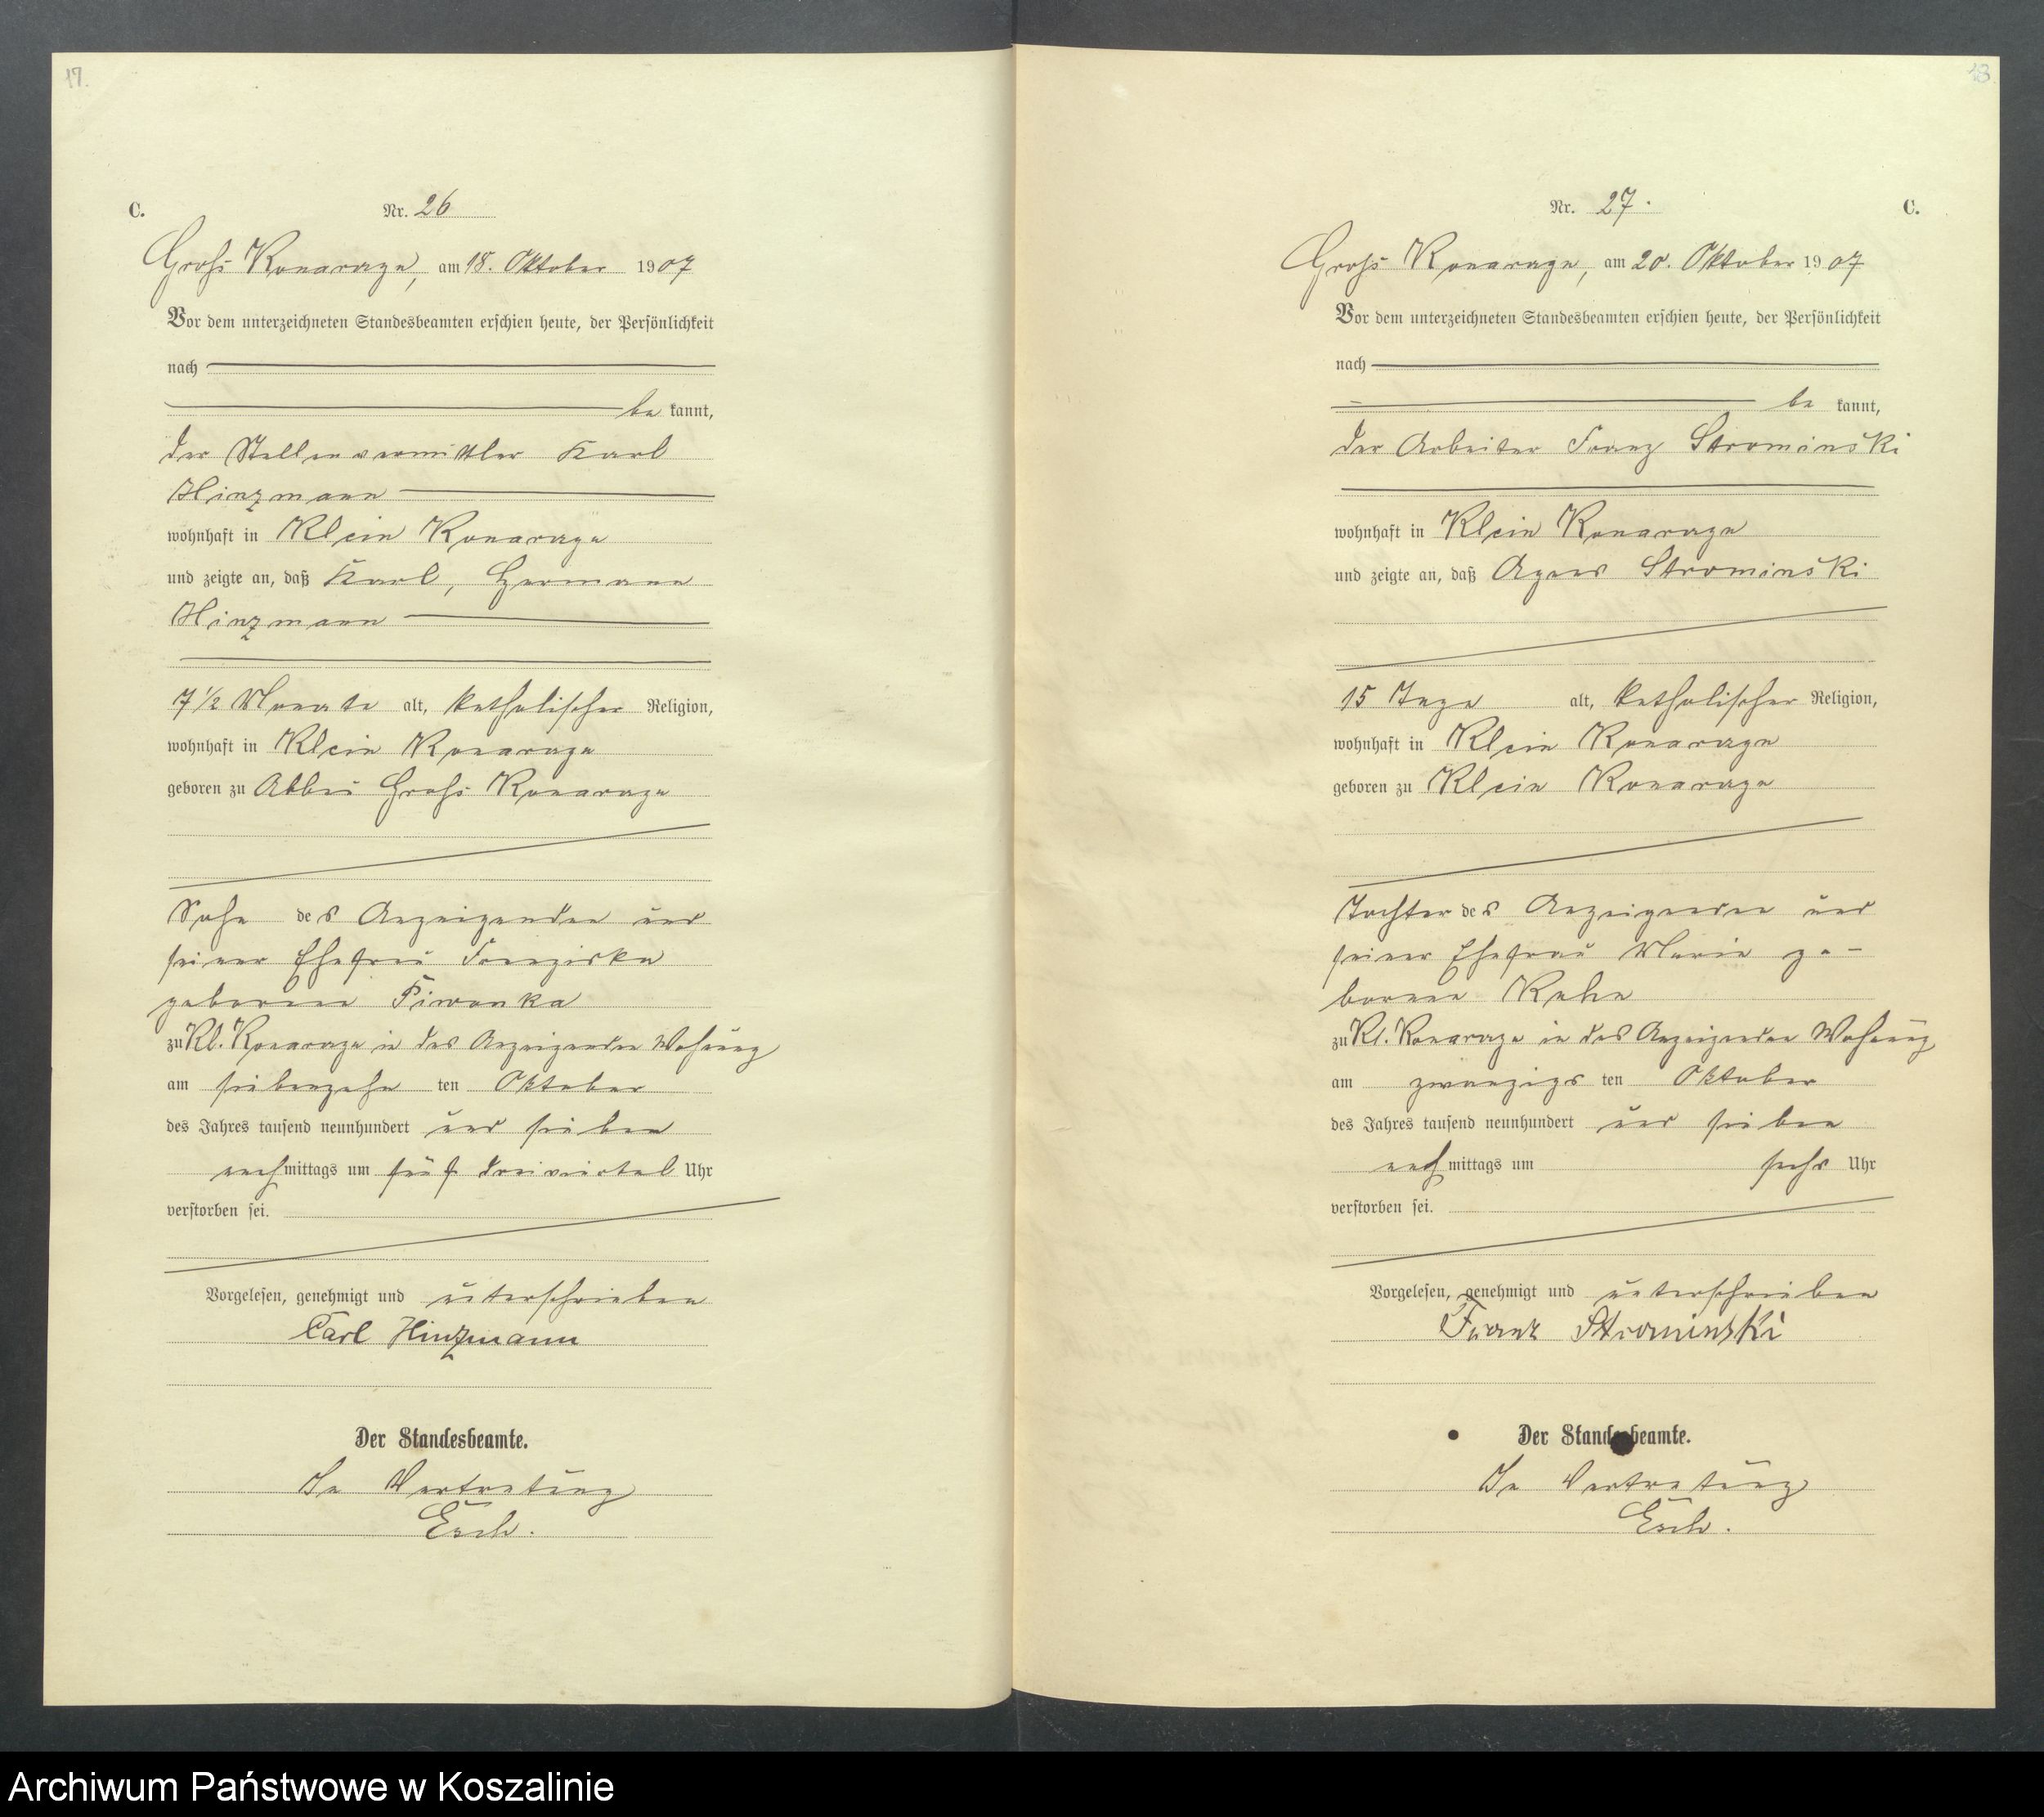 17.
C.
Nr. 26
Groß Konarzyn, am 18. Oktober 1907
Vor dem unterzeichneten Standesbeamten erschien heute, der Persönlichkeit
nach
be kannt,
der Stellenvermittler Karl
Hinzmann
wohnhaft in Klein Konarzyn
und zeigte an, daß Karl, Hermann
Hinzmann
7 1/2 Monate alt, katholischer Religion,
wohnhaft in Klein Konarzyn
geboren zu Abbau Groß Konarzyn
Sohn des Anzeigenden und
seiner Ehefrau Franziska
geborenen Piwonka
zu Kl. Konarzyn in des Anzeigenden Wohnung
am siebenzehn ten Oktober
des Jahres tausend neunhundert und sieben
nachmittags um fünf dreiviertel Uhr
verstorben sei.
Vorgelesen, genehmigt und unterschrieben
Carl Hinzmann
Der Standesbeamte.
In Vertretung
Esch.
18
Nr. 27.
C.
Groß Konarzyn, am 20. Oktober 1907
Vor dem unterzeichneten Standesbeamten erschien heute, der Persönlichkeit
nach
be kannt,
der Arbeiter Franz Strominski
wohnhaft in Klein Konarzyn
und zeigte an, daß Agnes Strominski
15 Tage alt, katholischer Religion,
wohnhaft in Klein Konarzyn
geboren zu Klein Konarzyn
Tochter des Anzeigenden und
seiner Ehefrau Marie ge-
borenen
zu Kl. Konarzyn in des Anzeigenden Wohnung
am zwanzigs ten Oktober
des Jahres tausend neunhundert und sieben
nach mittags um sechs Uhr
verstorben sei.
Vorgelesen, genehmigt und unterschrieben
Franz Strominski
Der Standesbeamte.
In Vertretung
Esch.
Archiwum Państwowe w Koszalinie